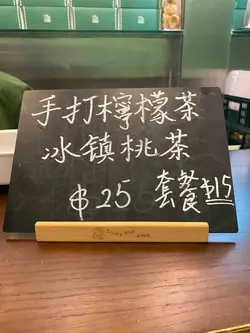 手打檸檬茶
冰镇桃茶
$25 套餐$15